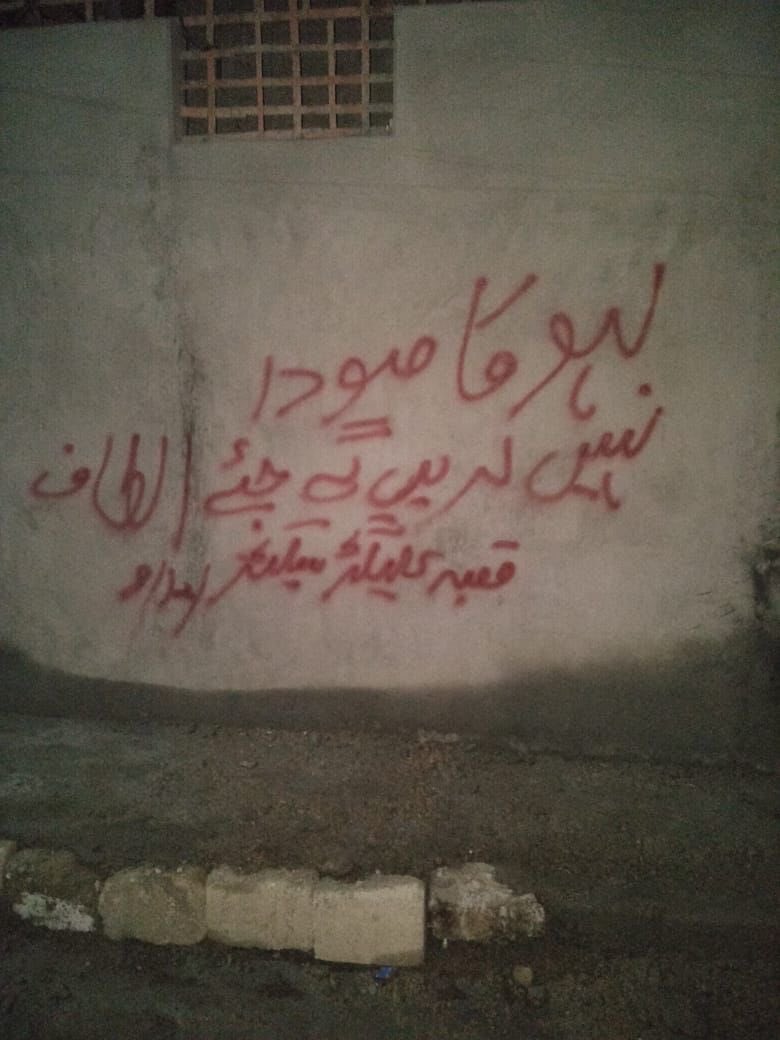 لہو کا سودا
نہیں کریں گے جئے الطاف
قصبہ علیگڑھ سیکٹر